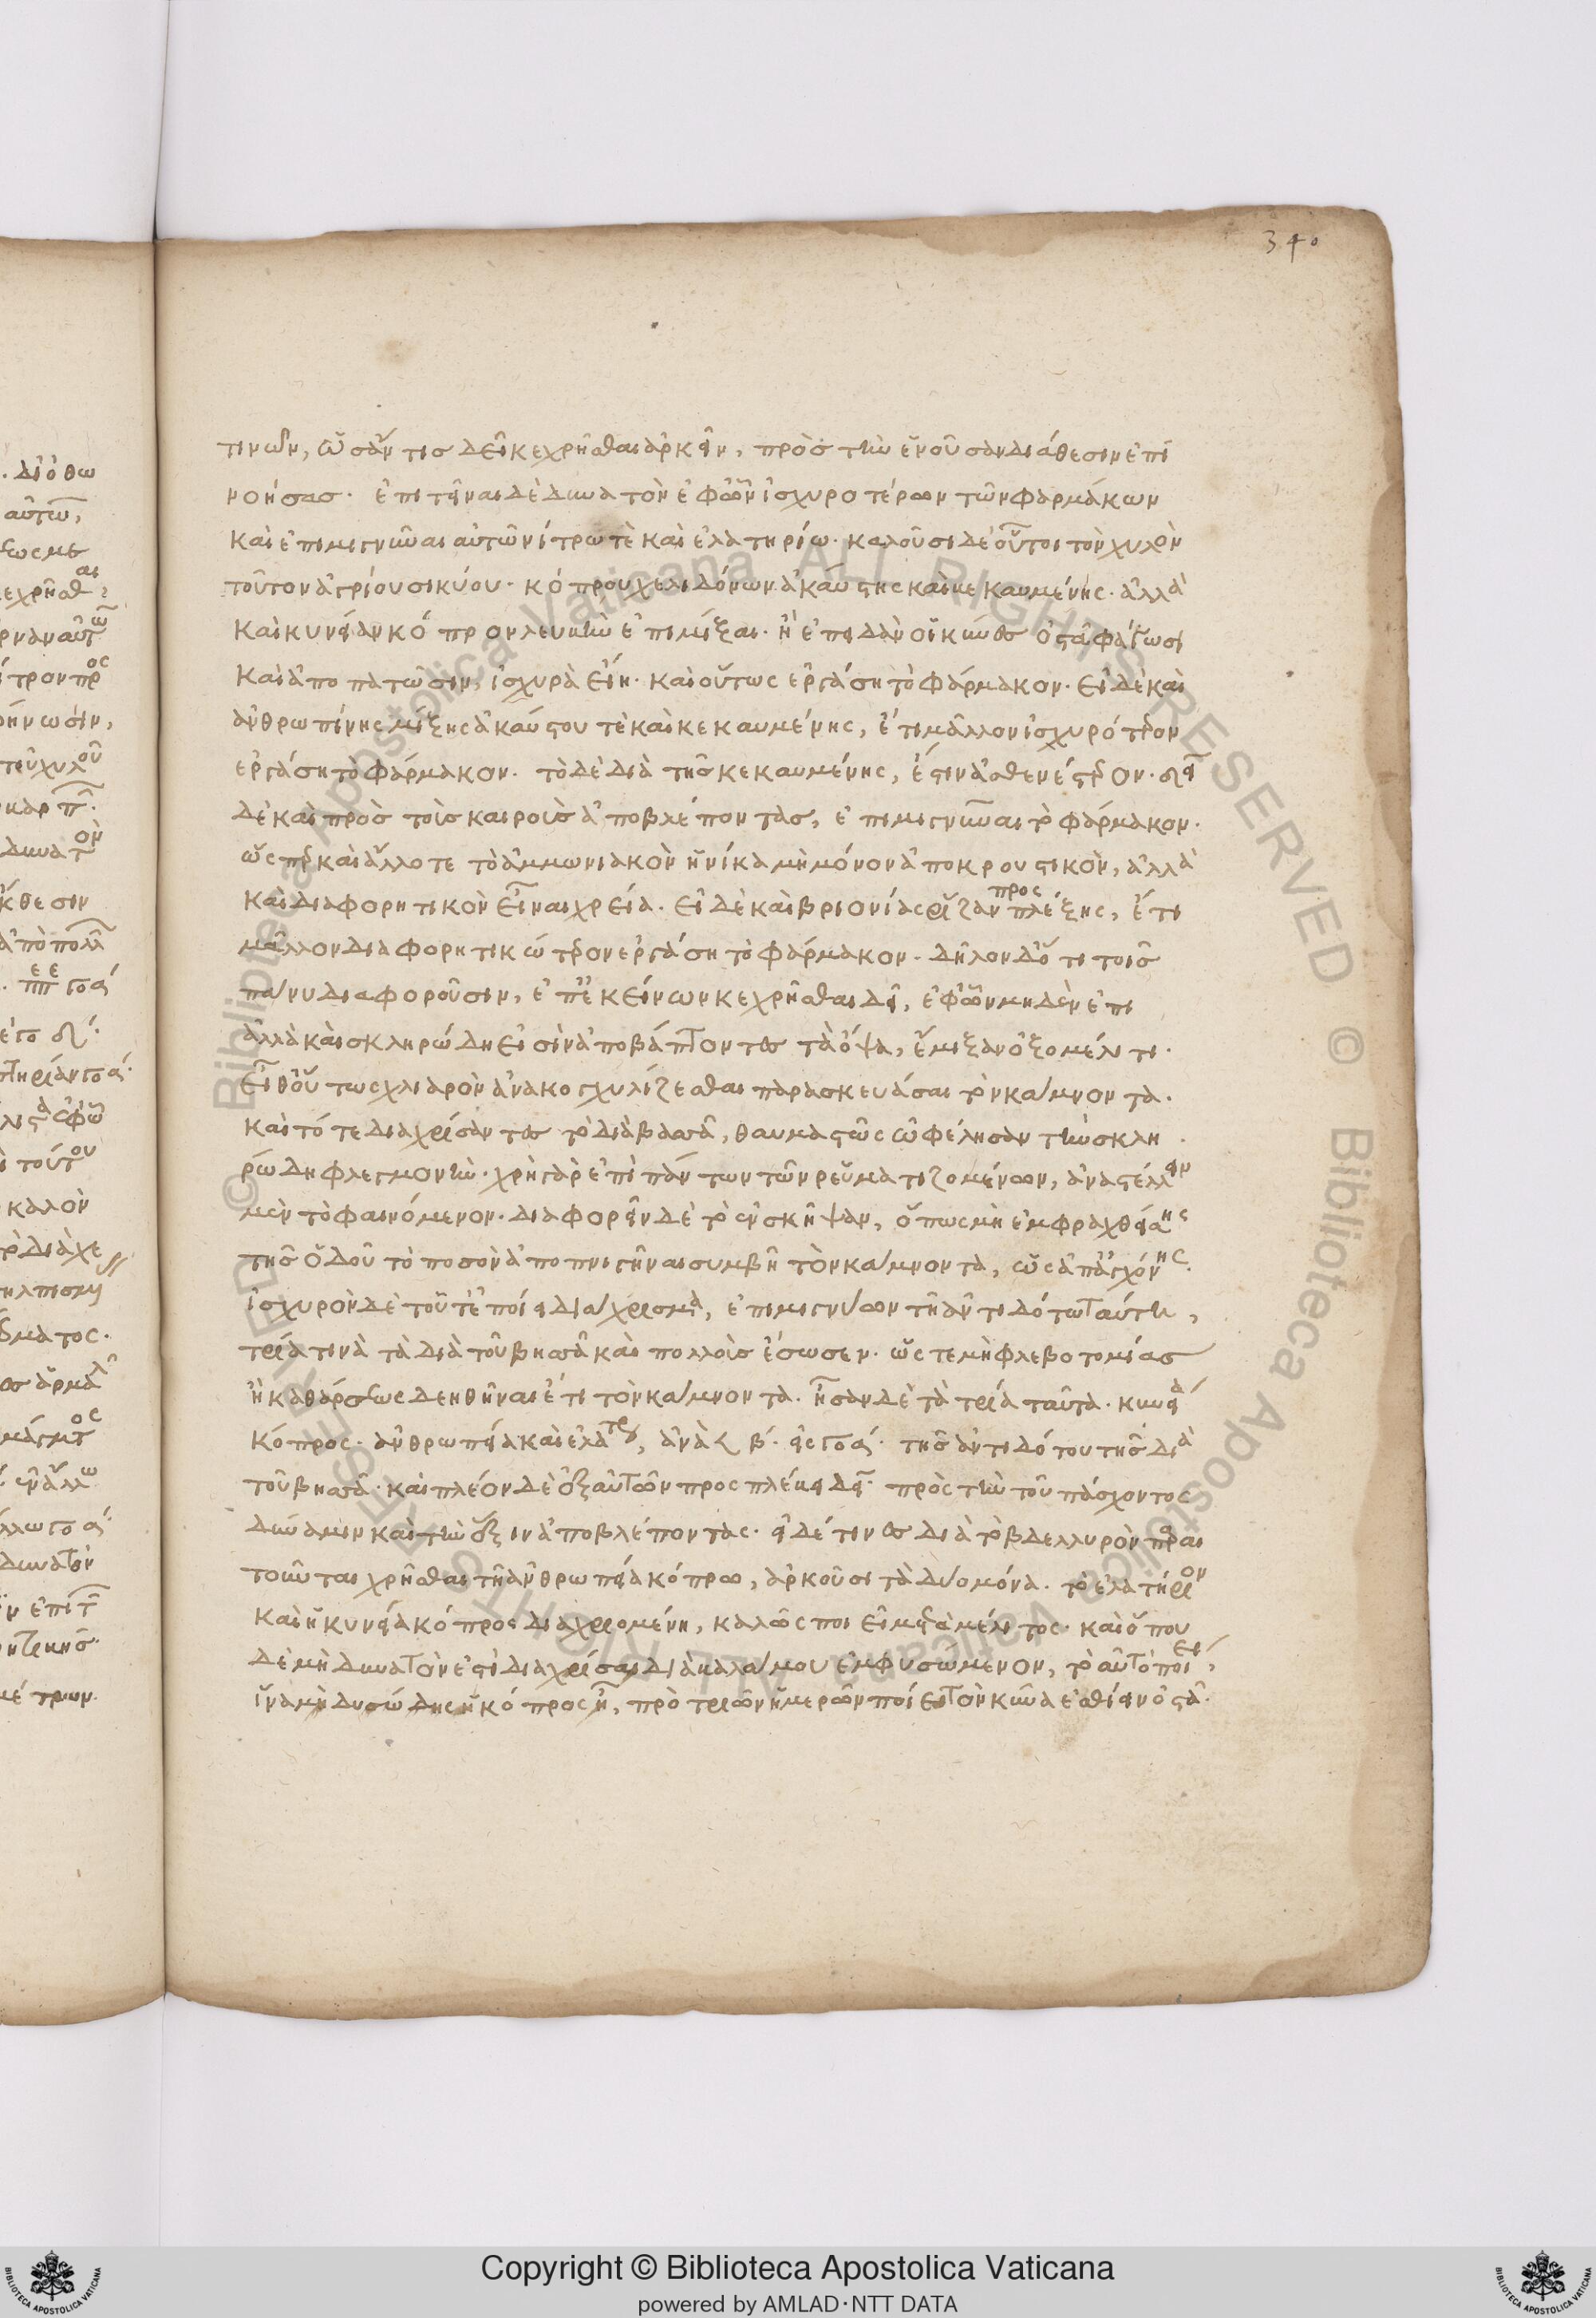 340
τινῶν, ὡσάν τις δεῖ κεχρῆσθαι ἀρκεῖν, πρὸς τὴν ἐνοῦσαν διάθεσιν ἐπι
νοήσας. ἐπιτεῖναι δὲ δυνατὸν ἐφ' ὧν ἰσχυροτέρων τῶν φαρμάκων
καὶ ἐπιμιγνῦναι αὐτῶ νίτρω τὲ καὶ ἐλατηρίω. καλοῦσι δὲ οὕτοι τὸν χυλὸν
τοῦτον ἀγρίου σικύου. κόπρου χελιδόνων ἀκαύστης καὶ κεκαυμένης. ἀλλὰ
καὶ κυνείαν κόπρον λευκὴν ἐπιμίξαι. ἢ ἐπειδὰν οἱ κύνες ὀστᾶ φάγωσι
καὶ ἀποπατῶσιν, ἰσχυρὰ εἴη. καὶ οὕτως ἐργάση τὸ φάρμακον. εἰ δὲ καὶ
ἀνθρωπίνης μίξης ἀκαύστου τὲ καὶ κεκαυμένης, ἔτι μᾶλλον ἰσχυρότερον
ἐργάση τὸ φάρμακον. τὸ δὲ διὰ τῆς κεκαυμένης, ἔστιν ἀσθενέστερον. δεῖ
δὲ καὶ πρὸς τοῖς καιροῖς ἀποβλέποντας, ἐπιμιγνῦναι τὸ φάρμακον.
ὥσπερ καὶ ἄλλοτε τὸ ἀμμωνιακὸν ἡνίκα μὴ μόνον ἀποκρουστικὸν, ἀλλὰ
καὶ διαφορητικὸν εἶναι χρεία. εἰ δὲ καὶ βριονίας ῥίζαν προσπλέξης, ἔτι
μᾶλλον διαφορητικώτερον ἐργάση τὸ φάρμακον. δῆλον δ' ὅτι τοῖς
πάνυ διαφοροῦσιν, ἐπ' ἐκείνων κεχρῆσθαι δεῖ, ἐφ' ὧν μηδὲν ἔτι
ἀλλὰ καὶ σκληρώδη εἰσὶν ἀποβάπτοντες τὰ ὄψα, ἔμιξαν ὀξομέλιτι.
εἶθ' οὕτως χλιαρὸν ἀνακογχυλίζεσθαι παρασκευάσαι τὸν κάμνοντα.
καὶ τότε διαχρίσαντες τὸ διὰ βησασᾶ, θαυμαστῶς ὠφέλησαν τὴν σκλη
ρώδη φλεγμονὴν. χρὴ γὰρ ἐπὶ πάντων τῶν ρευματιζομένων, ἀναστέλλειν
μὲν τὸ φαινόμενον. διαφορεῖν δὲ τὸ ἐνσκῆψαν, ὅπως μὴ ἐμφραχθείσης
τῆς ὁδοῦ τὸ ποσὸν ἀποπνιγῆναι συμβῆ τὸν κάμνοντα, ὡς ἀπ' ἀγχόνης.
ἰσχυρὸν δὲ τοῦτ' ἐποίει διάχρισμα, ἐπιμιγνύων τῆ ἀντιδότω ταύτη,
τρία τινὰ τὰ διὰ τοῦ βησασᾶ καὶ πολλοῖς ἔσωσεν. ὥστε μὴ φλεβοτομίας
ἢ καθάρσεως δεηθῆναι ἔτι τὸν κάμνοντα. ἦσαν δὲ τὰ τρία ταῦτα. κυνεία
κόπρος. ἀνθρωπεία καὶ ἐλατηρ, ἀνὰ β. εἰς γο ά. τῆς ἀντιδότου τῆς διὰ
τοῦ βησασᾶ. καὶ πλέον δὲ ἐξ αὐτῶν προσπλέκειν δεῖ. πρὸς τὴν τοῦ πάσχοντος
δύναμιν καὶ τὴν ἕξιν ἀποβλέποντας. εἰ δέ τινες διὰ τὸ βδελλυρὸν παραι
τοῦνται χρῆσθαι τῆ ἀνθρωπεία κόπρω, ἀρκοῦσι τὰ δύο μόνα. τὸ ἐλατήριον
καὶ ἡ κυνεία κόπρος διαχριομένη, καλῶς ποιεῖ μετὰ μέλιτος. καὶ ὅπου
δὲ μὴ δυνατόν ἐστι διαχρίσαι διὰ καλάμου ἐμφυσώμενον, τὸ αὐτὸ ποιεῖ,
ἵνα μὴ δυσώδης ἡ κόπρος ῆ, πρὸ τριῶν ἡμερῶν ποίει τὸν κύνα ἐσθίειν ὀστᾶ.
Copyright © Biblioteca Apostolica Vaticana
powered by AMLAD·NTT DATA